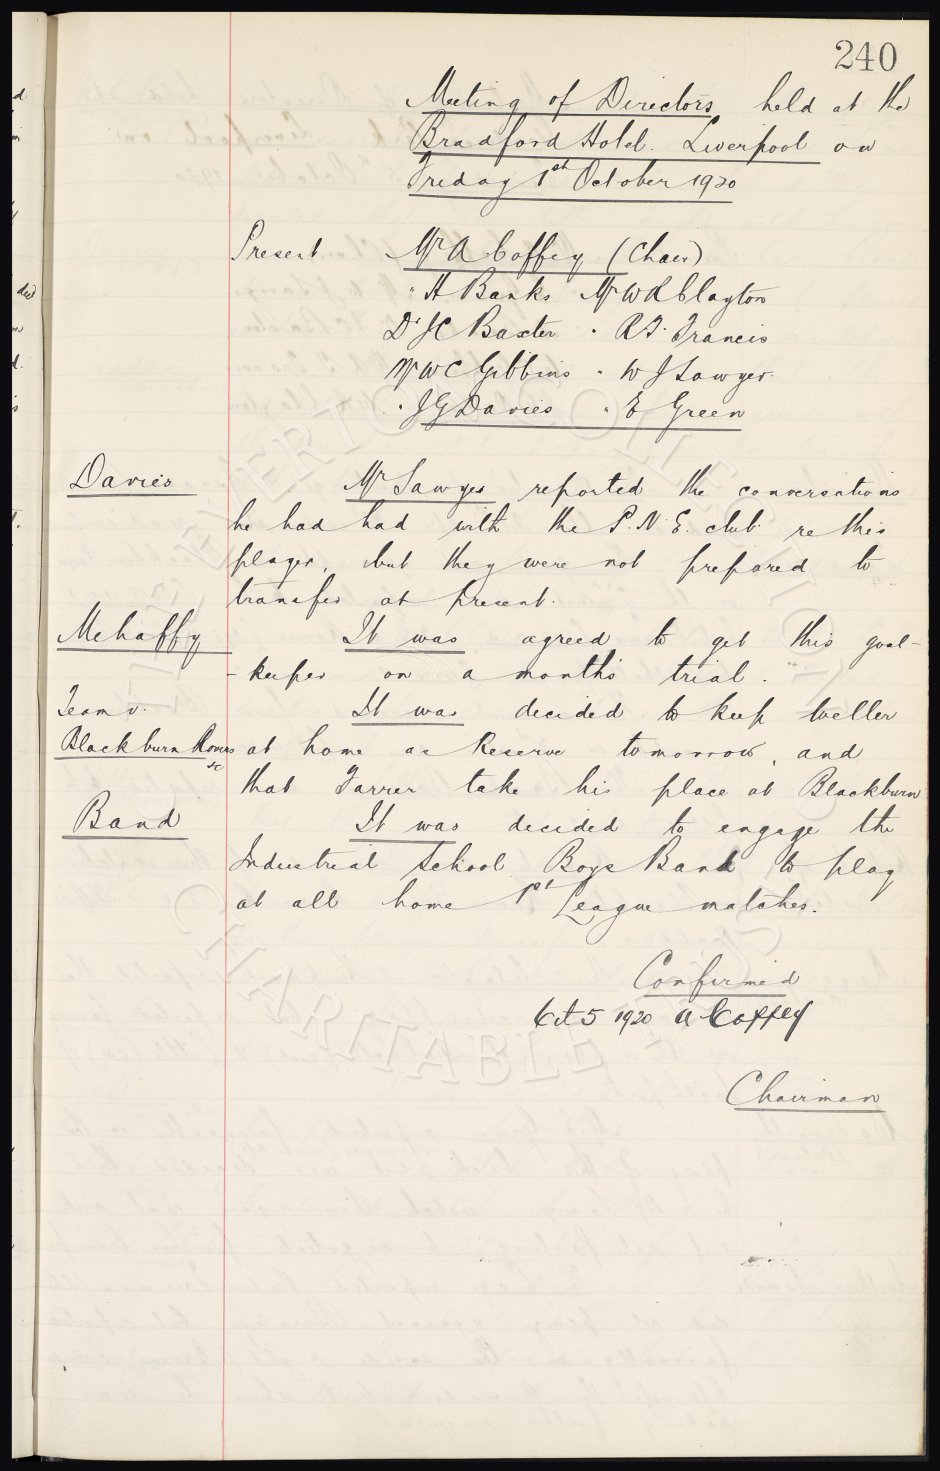 240
Meeting of Directors held at the
Bradford Hotel. Liverpool on
Friday 1st October 1920
Present Mr A Coffey (Chair)
" H Banks Mr W R Clayton
Dr J C Baxter " R T Francis
Mr W C Gibbins " W J Sawyer
" J G Davies " E Green
Davies Mr Sawyer reported the conversations
he had had with the P.N.E. club re this
player, but they were not prepared to
transfer at present.
Mehaffy It was agreed to get this goal-
-keeper on a month's trial.
Team v. It was decided to keep Weller
Blackburn Rovers at home as Reserve tomorrow, and
that Farrer take his place at Blackburn
Band It was decided to engage the
Industrial School Boys Band to play
at all home 1st League matches.
Confirmed
Oct 5 1920 A Coffey
Chairman
THE EVERTON COLLECTION
CHARITABLE TRUST